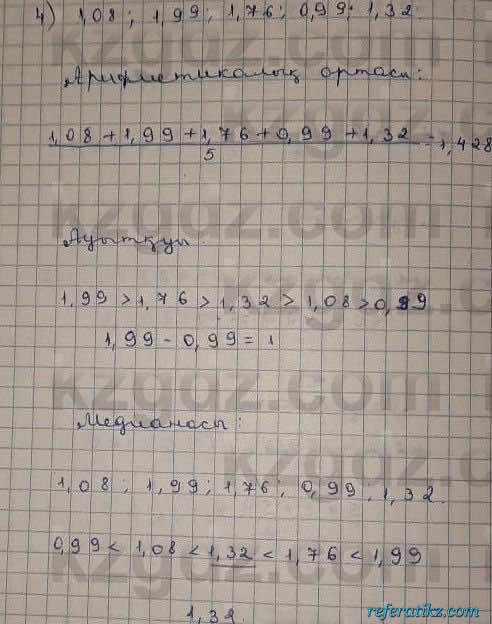 4) 1,08; 1,99; 1,76; 0,99; 1,32.
Арифметикалық ортасы:
1,08 + 1,99 + 1,76 + 0,99 + 1,32 = 1,428
5
Ауытқуы:
1,99 > 1,76 > 1,32 > 1,08 > 0,99
1,99 - 0,99 = 1
Медианасы:
1,08; 1,99; 1,76; 0,99; 1,32.
0,99 < 1,08 < 1,32 < 1,76 < 1,99
1,32.
kzgdz.com
referatikz.com